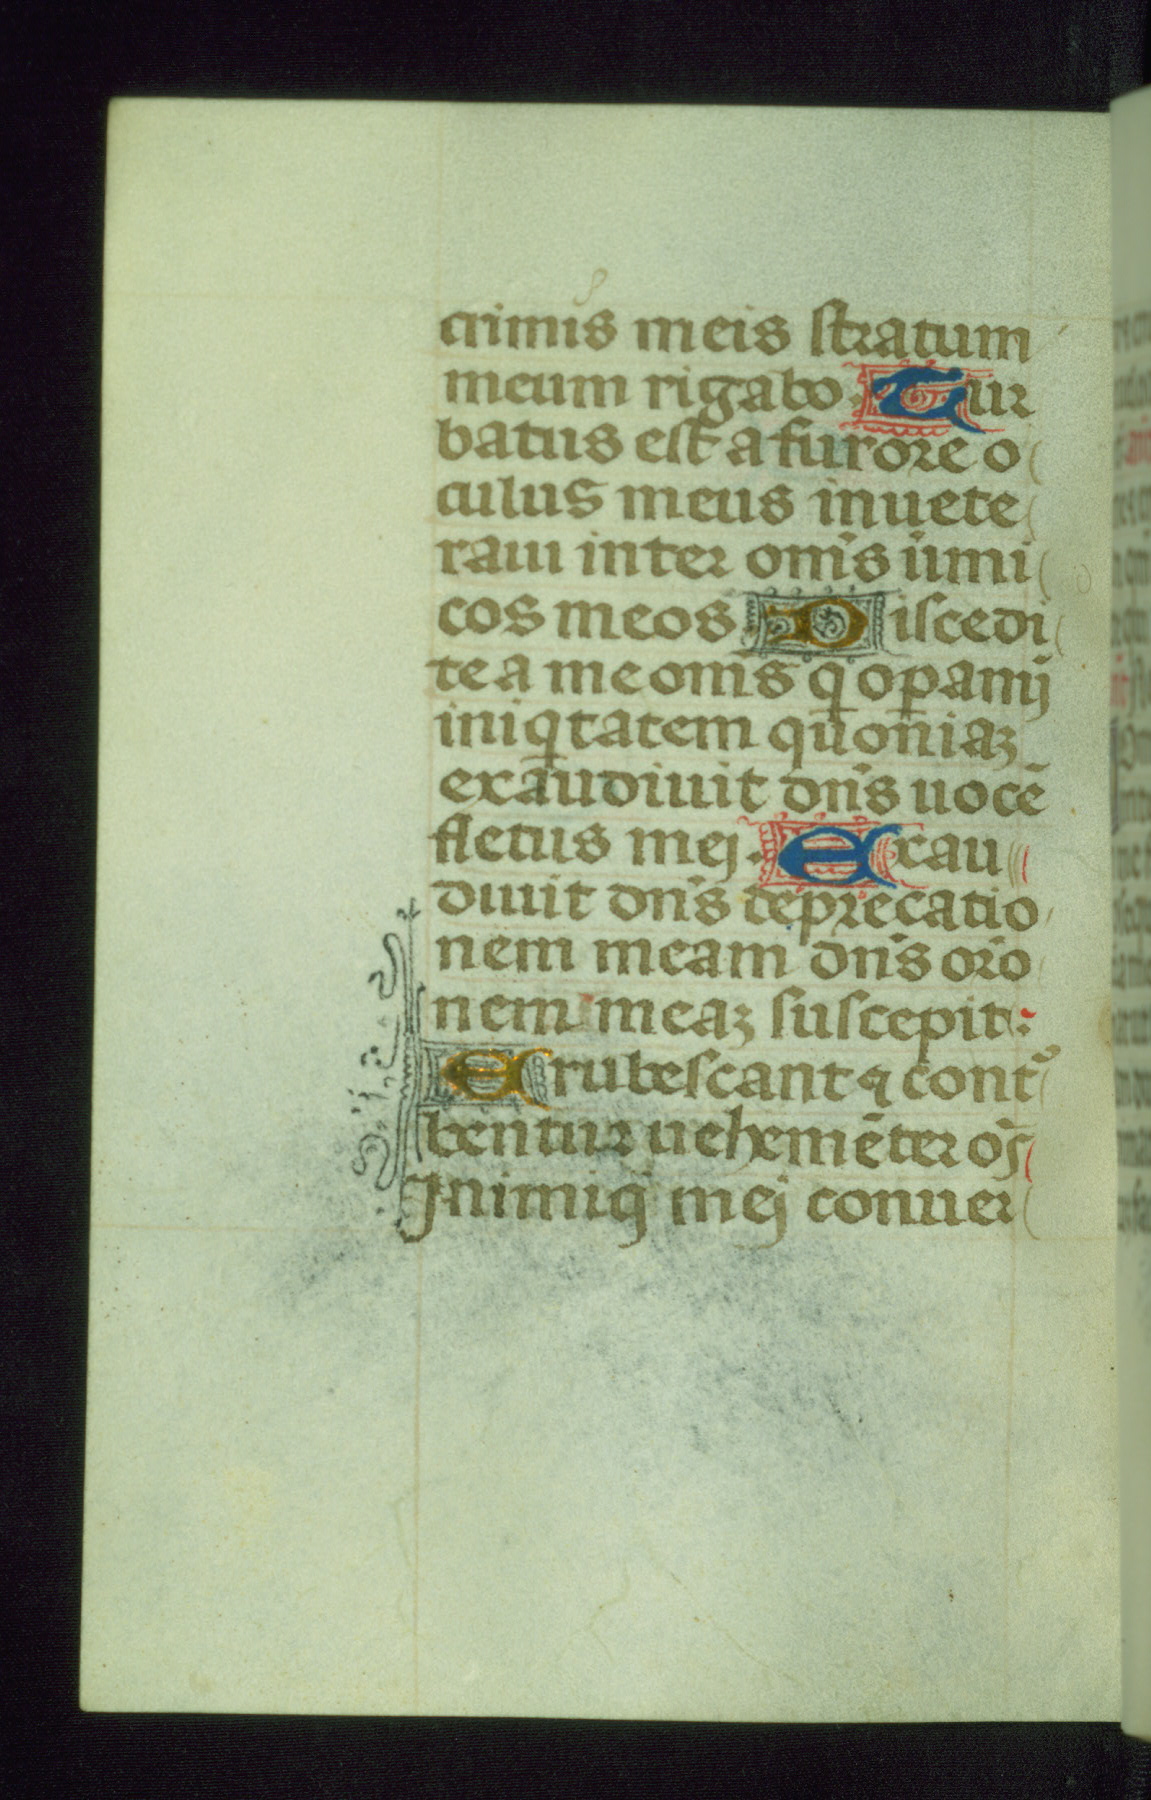 crimis meis stratum
meum rigabo. Tur
batus est a furore o
culus meus inuete
raui inter om̄s inimi
cos meos Discedi
te a me om̄s q̇ oꝑamij
iniq̇tatem quoniaꝫ
exaudiuit dn̄s uocē
fletus mej. Exau
diuit dn̄s deprecatio
nem meam dn̄s or̄o
nem meaꝫ suscepit:
Erubescant ⁊ contˀ
bentur uehemēter oṁs
Inimiq̇ mej conuer